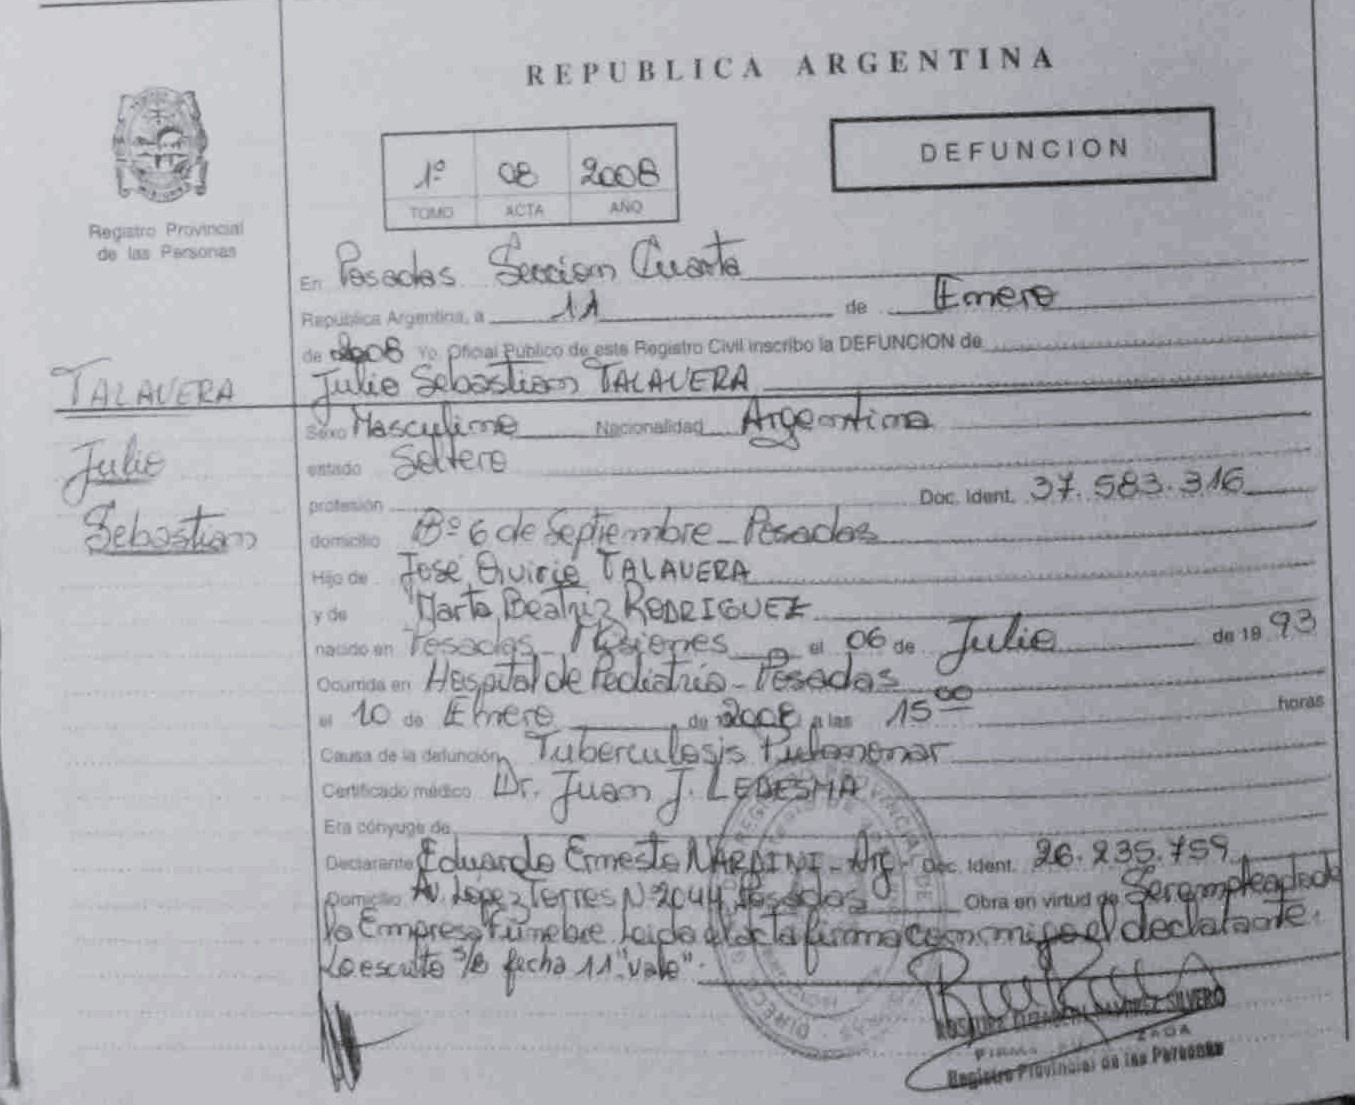 REPUBLICA ARGENTINA
DEFUNCION
1º 08 2008
TOMO ACTA AÑO
Registro Provincial
de las Personas
En Posadas Seccion Cuarta
República Argentina, a 11 de Enero
de 2008 Yo Oficial Público de este Registro Civil inscribo la DEFUNCION de
TALAVERA
Julio Sebastian TALAVERA
Sexo Masculino Nacionalidad Argentina
Julio
estado Soltero
profesión Doc. Ident. 37.583.316
Sebastian
domicilio Bº 6 de Septiembre - Posadas
Hijo de José Quirie TALAVERA
y de Marta Beatriz RODRIGUEZ
nacido en Posadas - Misiones el 06 de Julio de 19 93
Ocurrida en Hospital de Pediatria - Posadas
el 10 de Enero de 2008 a las 15 00 horas
Causa de la defunción Tuberculosis Pulmonar
Certificado médico Dr. Juan J. LEDESMA
Era cónyuge de
Declarante Eduardo Ernesto NARDINI - Arg - Doc. Ident. 26.235.759
Domicilio Av. López Torres Nº 2044 Posadas Obra en virtud de Ser empleado de
la Empresa Fúnebre. Leida el acta firma conmigo el declarante.
Lo escrito s/b fecha 11 "vale".
RAMIREZ SILVERO
Registro Provincial de las Personas